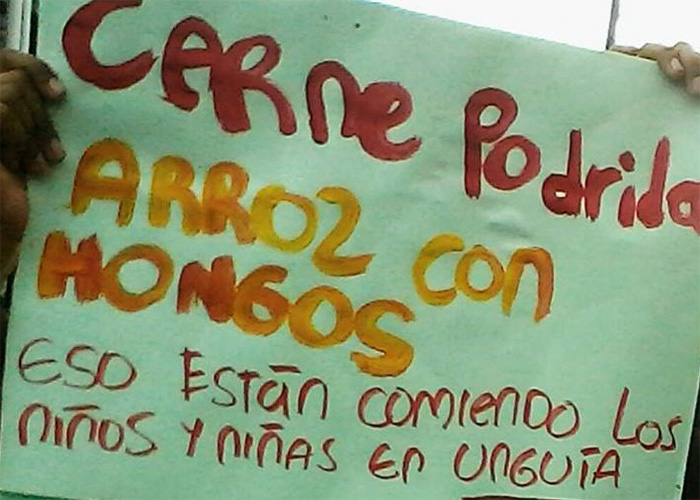 CARne Podrida
ARROZ con
HONGOS
ESO ESTán comiendo Los
niños y niñas en UnGUíA